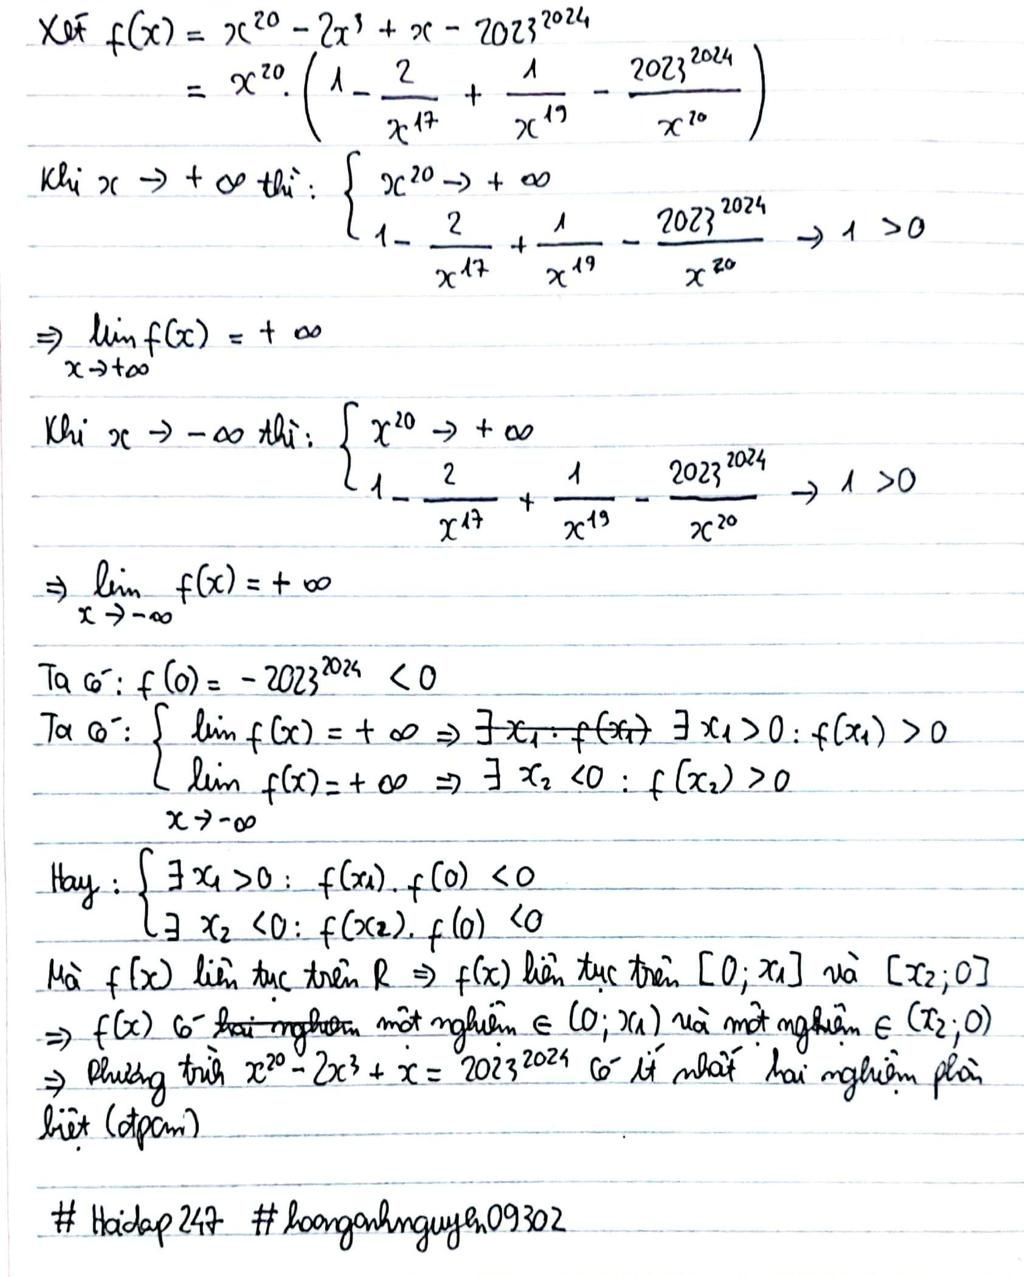 Xét f(x) = x^20 - 2x^3 + x - 2023^2024
= x^20 . (1 - 2/x^17 + 1/x^19 - 2023^2024/x^20)
Khi x → +∞ thì: { x^20 → +∞
1 - 2/x^17 + 1/x^19 - 2023^2024/x^20 → 1 > 0
⇒ lim f(x) = +∞
x→+∞
Khi x → -∞ thì: { x^20 → +∞
1 - 2/x^17 + 1/x^19 - 2023^2024/x^20 → 1 > 0
⇒ lim f(x) = +∞
x→-∞
Ta có: f(0) = -2023^2024 < 0
Ta có: { lim f(x) = +∞ ⇒ ∃ x₁ : f(x₁) ∃ x₁ > 0 : f(x₁) > 0
lim f(x) = +∞ ⇒ ∃ x₂ < 0 : f(x₂) > 0
x→-∞
Hay : { ∃ x₁ > 0 : f(x₁) . f(0) < 0
∃ x₂ < 0 : f(x₂) . f(0) < 0
Mà f(x) liên tục trên R ⇒ f(x) liên tục trên [0; x₁] và [x₂; 0]
⇒ f(x) có hai nghiệm một nghiệm ∈ (0; x₁) và một nghiệm ∈ (x₂; 0)
⇒ Phương trình x^20 - 2x^3 + x = 2023^2024 có ít nhất hai nghiệm phân
biệt (đpcm)
# Hoidap247 # hoanganhnguyen09302